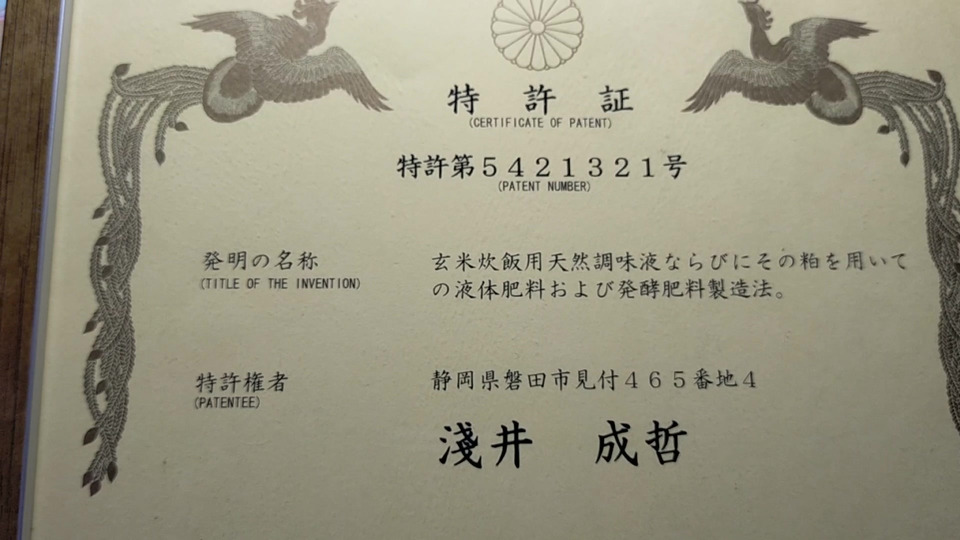 特許証
(CERTIFICATE OF PATENT)
特許第５４２１３２１号
(PATENT NUMBER)
発明の名称
(TITLE OF THE INVENTION)
玄米炊飯用天然調味液ならびにその粕を用いて
の液体肥料および発酵肥料製造法。
特許権者
(PATENTEE)
静岡県磐田市見付４６５番地４
淺井　成哲